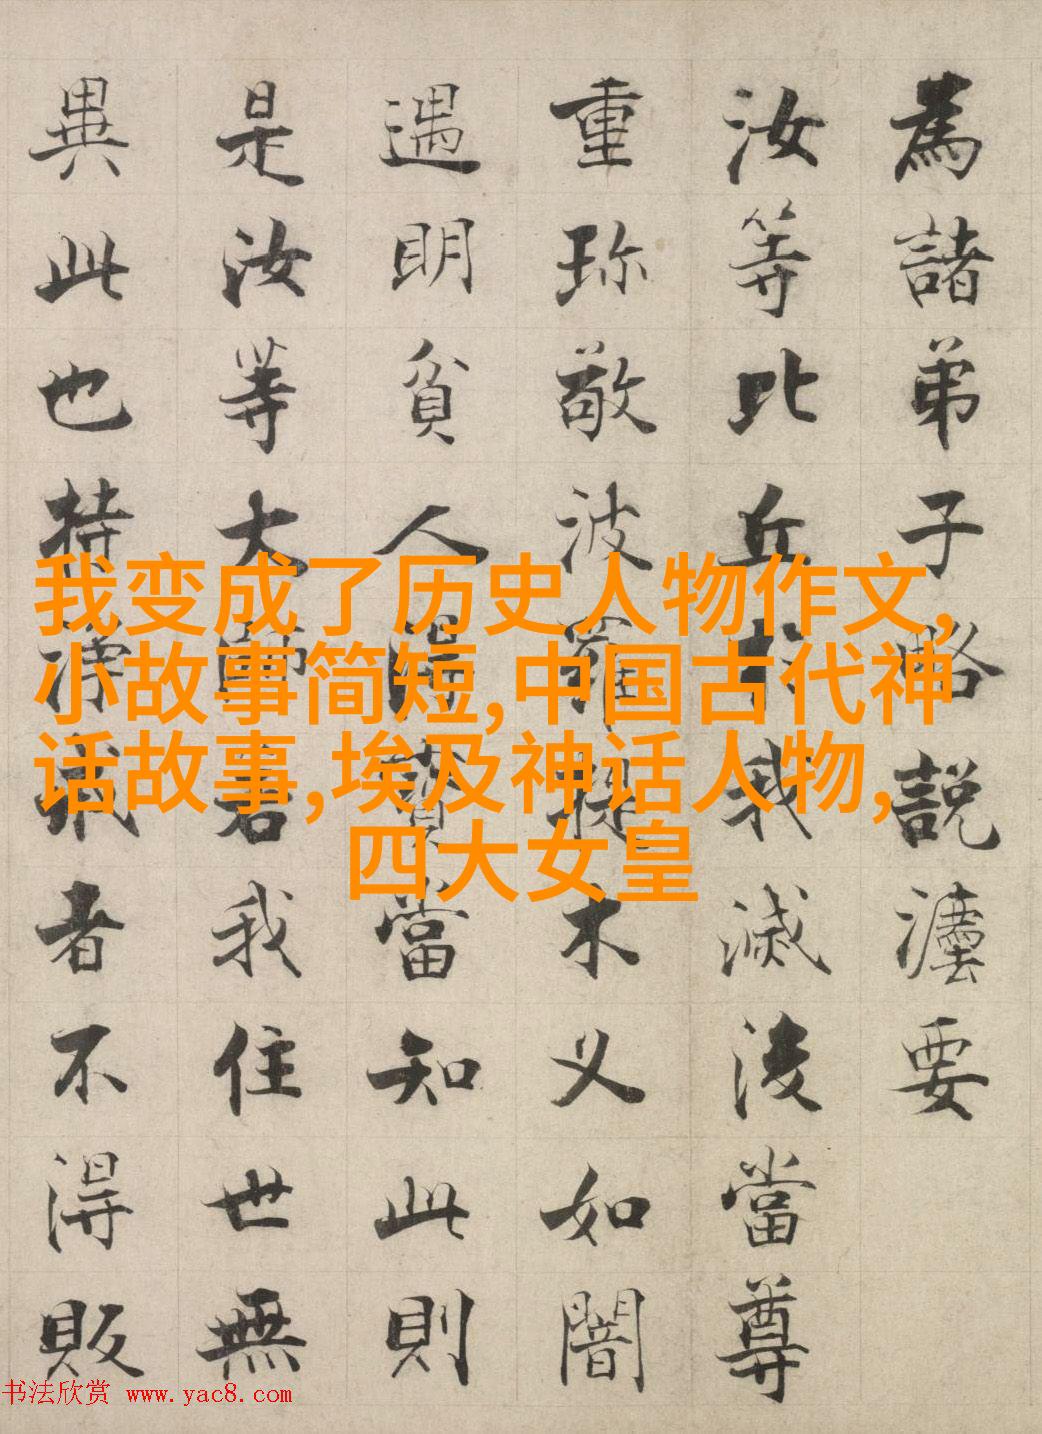 為諸弟子略說灋要
汝等比丘於我滅後當尊
重珎敬波羅提木叉如闇
遇明貧人得寶當知此則
是汝等大師若我住世無
異此也持淨戒者不得販
我变成了历史人物作文,
小故事简短,中国古代神
话故事,埃及神话人物,
四大女皇
书法欣赏 www.yac8.com